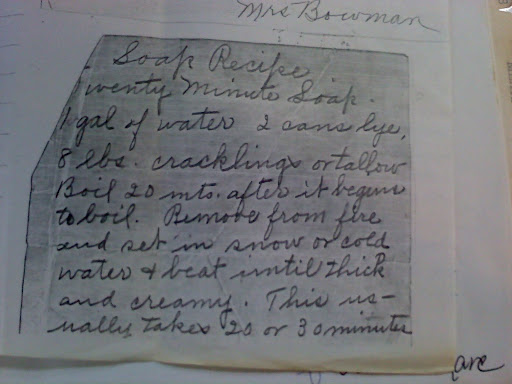 Mrs Bowman
Soap Recipe
wenty Minute Soap.
1 gal of water 2 cans lye,
8 lbs. cracklings or tallow
Boil 20 mts. after it begins
to boil. Remove from fire
and set in snow or cold
water & beat until thick
and creamy. This us-
ually takes 20 or 30 minutes
are